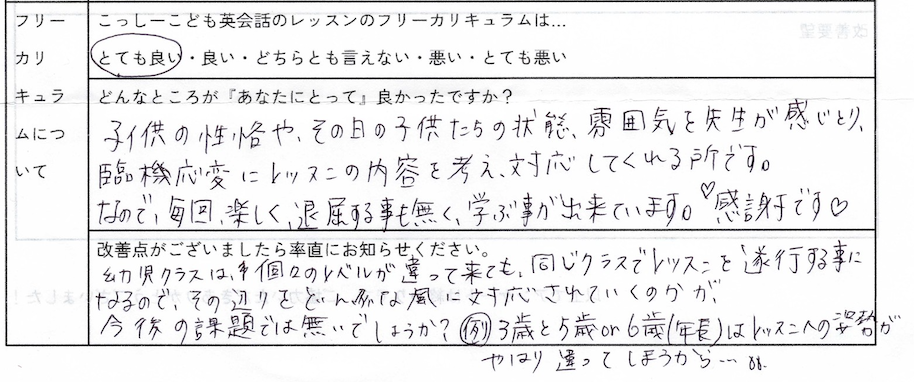 フリー
カリ
キュラ
ムにつ
いて
こっしーこども英会話のレッスンのフリーカリキュラムは…
とても良い・良い・どちらとも言えない・悪い・とても悪い
どんなところが『あなたにとって』良かったですか？
子供の性格や、その日の子供たちの状態、雰囲気を先生が感じとり、
臨機応変にレッスンの内容を考え、対応してくれる所です。
なので、毎回、楽しく、退屈する事も無く、学ぶ事が出来ています。♡感謝です♡
改善点がございましたら率直にお知らせください。
幼児クラスは、個々のレベルが違って来ても、同じクラスでレッスンを遂行する事に
なるので、その辺りをどんな風に対応されていくのかが、
今後の課題では無いでしょうか？ 例 3歳と5歳or6歳(年長)はレッスンへの姿勢が
やはり違ってしまうから…
改善要望